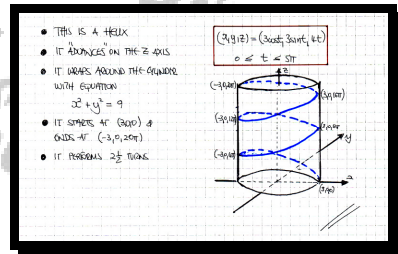 • THIS IS A HELIX
• IT "ADVANCES" ON THE Z AXIS
• IT WRAPS AROUND THE CYLINDER
WITH EQUATION
x² + y² = 9
• IT STARTS AT (3,0,0) &
ENDS AT (-3,0,20π)
• IT PERFORMS 2½ TURNS
(x,y,z) = (3cost, 3sint, 4t)
0 ≤ t ≤ 5π
z
(-3,0,20π)
(3,0,16π)
(-3,0,12π)
(3,0,8π)
y
(-3,0,4π)
x
(3,0,0)